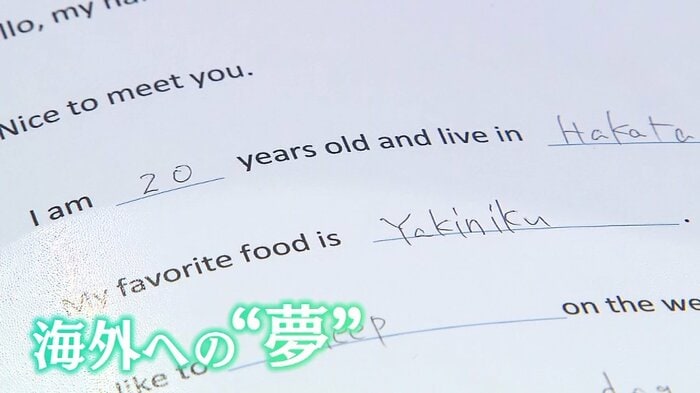 llo, my
Nice to meet you.
I am 20 years old and live in Hakata
My favorite food is Yakiniku.
like to eep on the we
海外への“夢”